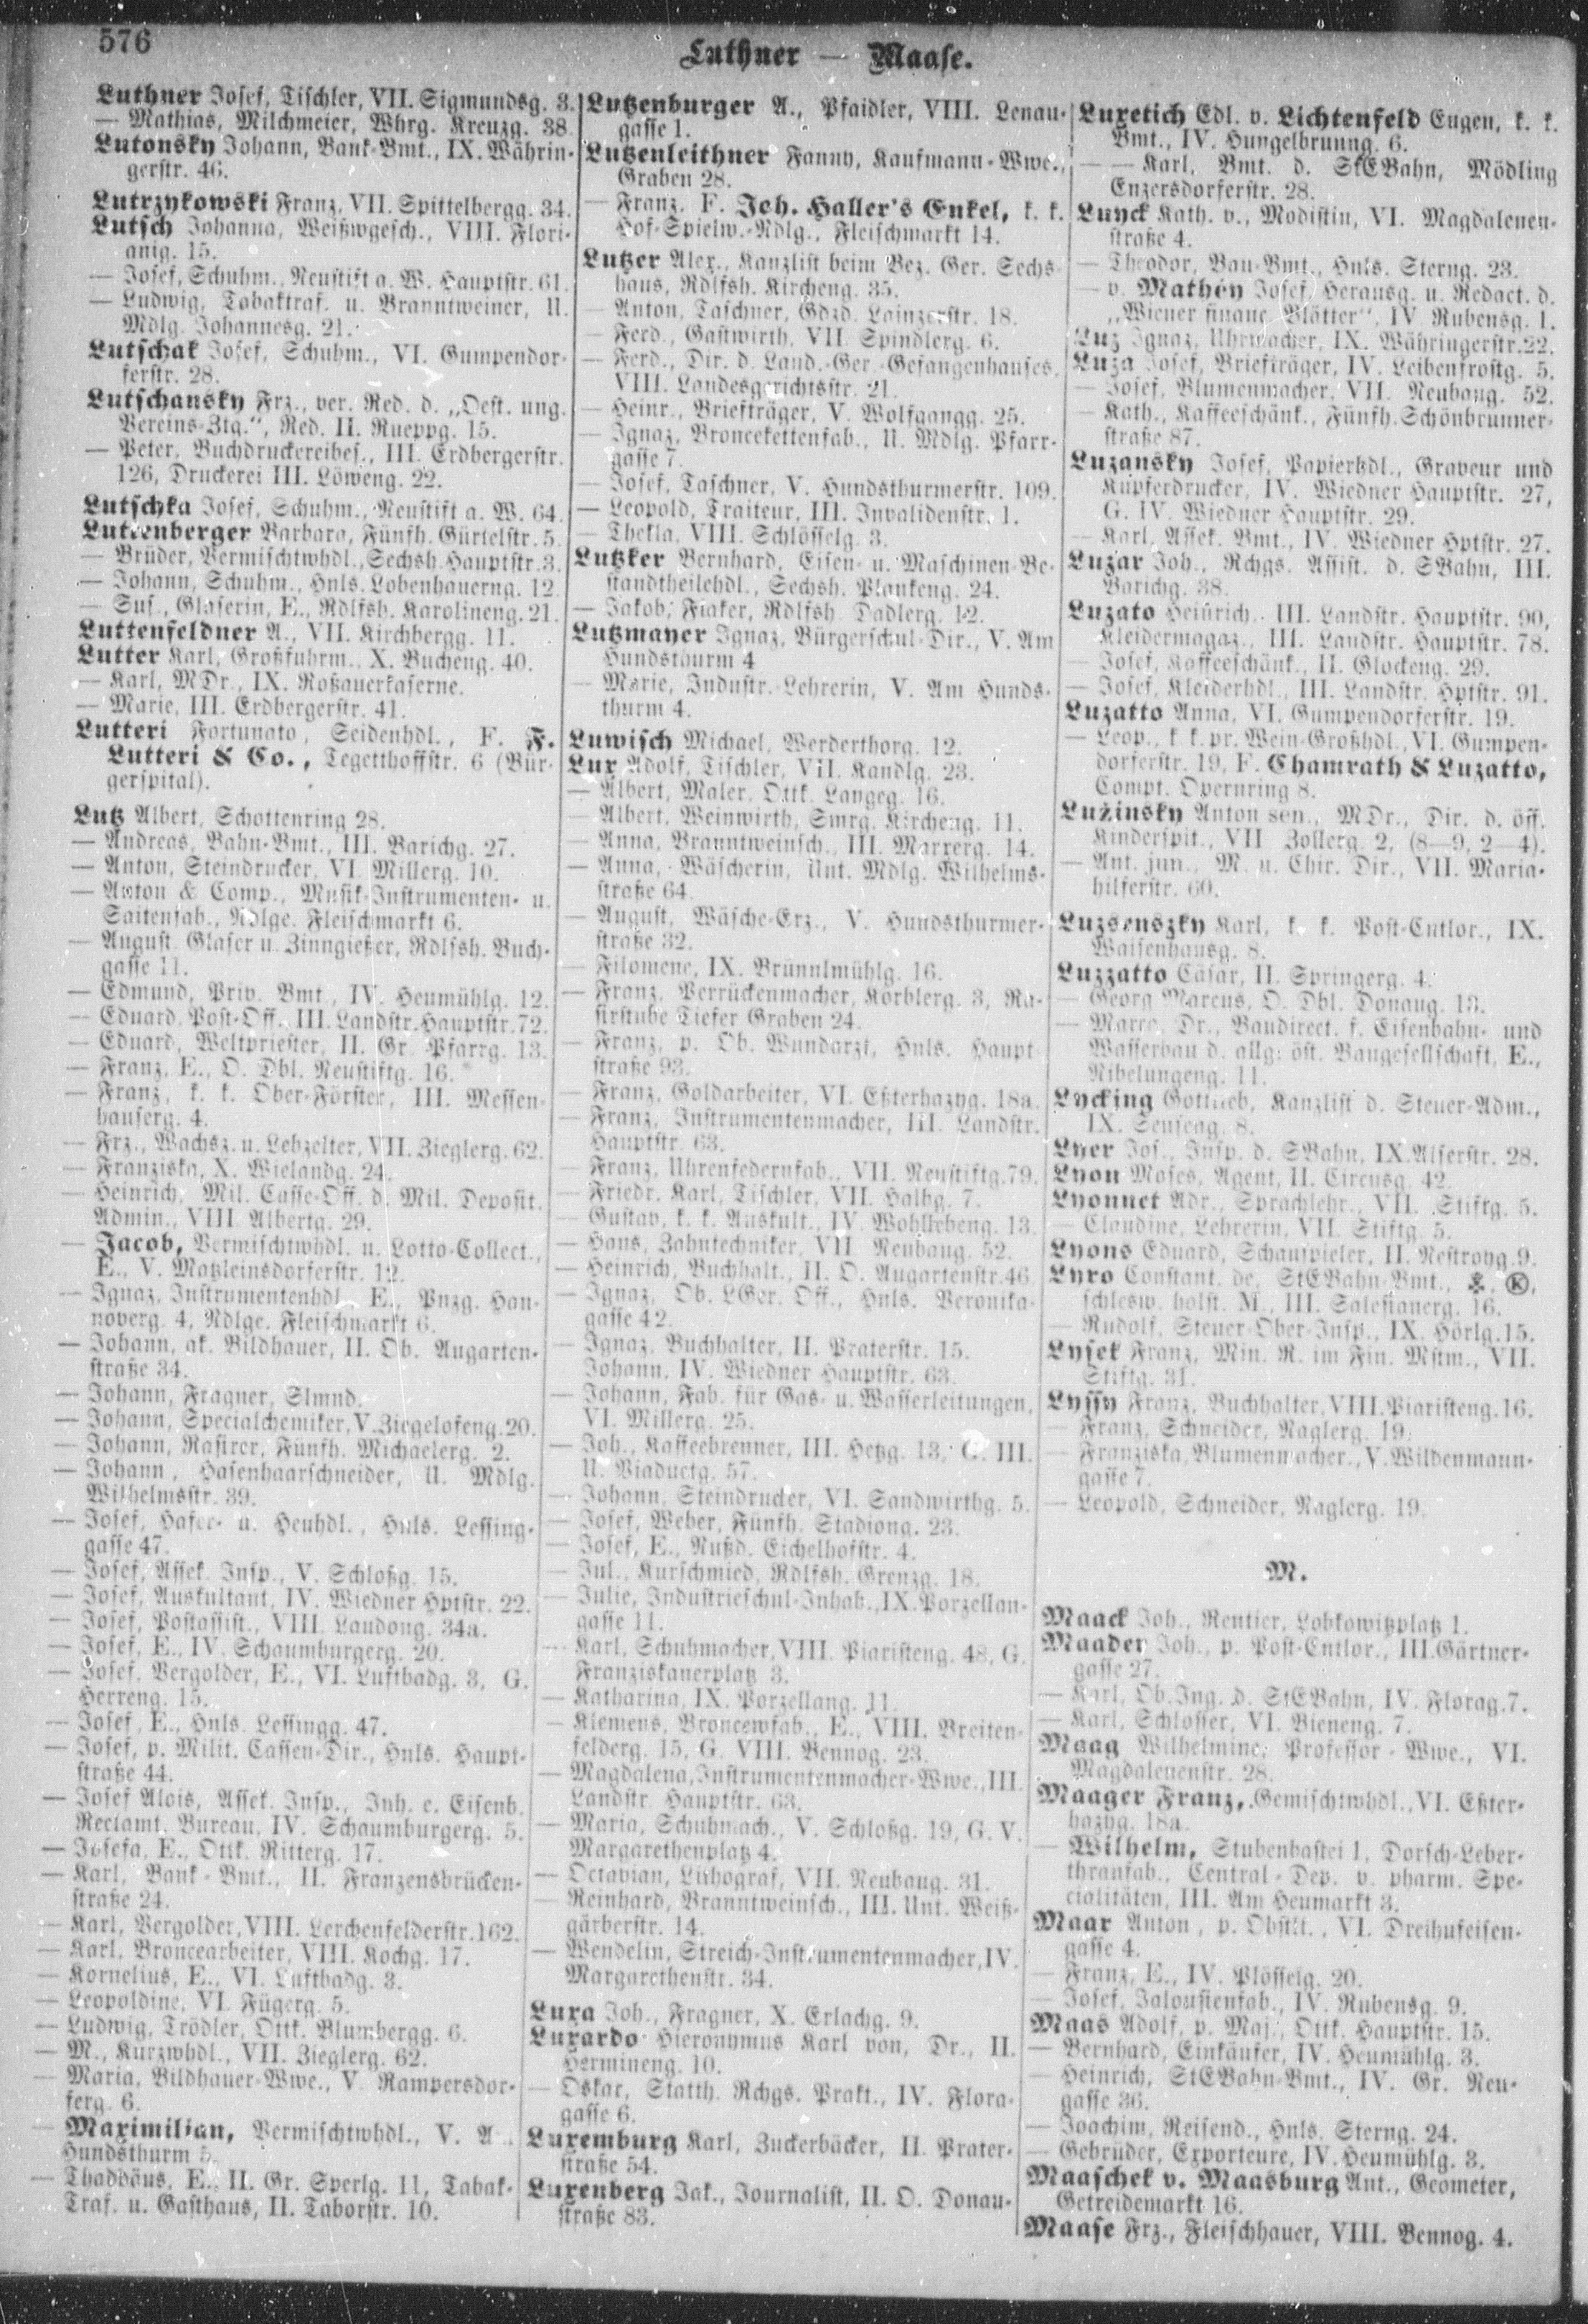 576
Luthner — Maase.
Luthner Josef, Tischler, VII. Sigmundsg. 3.
— Mathias, Milchmeier, Whrg. Kreuzg. 38
Lutonsky Johann, Bank-Bmt., IX. Währin-
gerstr. 46.
Lutrzykowski Franz, VII. Spittelbergg. 34.
Lutsch Johanna, Weißwgesch., VIII. Flori-
anig. 15.
— Josef, Schuhm., Neustift a. W. Hauptstr. 61.
— Ludwig, Tabaktraf. u. Branntweiner, U.
Mdlg. Johannesg. 21.
Lutschak Josef, Schuhm., VI. Gumpendor-
ferstr. 28.
Lutschansky Frz., ver. Red. d. „Oest. ung.
Vereins-Ztg.", Red. II. Rueppg. 15.
— Peter, Buchdruckereibes., III. Erdbergerstr.
126, Druckerei III. Löweng. 22.
Lutschka Josef, Schuhm., Neustift a. W. 64.
Luttenberger Barbara, Fünfh. Gürtelstr. 5.
— Brüder, Vermischtwhdl., Sechsh. Hauptstr. 3.
— Johann, Schuhm., Hnls. Lobenhauerng. 12
— Sus., Glaserin, E., Rdlfsh. Karolineng. 21.
Luttenfeldner A., VII. Kirchbergg. 11.
Lutter Karl, Großfuhrm., X. Bucheng. 40.
— Karl, MDr., IX. Roßauerkaserne.
— Marie, III. Erdbergerstr. 41.
Lutteri Fortunato, Seidenhdl., F. F.
Lutteri & Co., Tegetthoffstr. 6 (Bür-
gerspital).
Lutz Albert, Schottenring 28.
— Andreas, Bahn-Bmt., III. Barichg. 27.
— Anton, Steindrucker, VI. Millerg. 10.
— Anton & Comp., Musik-Instrumenten- u.
Saitenfab., Ndlge. Fleischmarkt 6.
— August, Glaser u. Zinngießer, Rdlfsh. Buch-
gasse 11.
— Edmund, Priv. Bmt., IV. Heumühlg. 12.
— Eduard, Post-Off., III. Landstr. Hauptstr. 72.
— Eduard, Weltpriester, II. Gr. Pfarrg. 13.
— Franz, E., O. Dbl. Neustiftg. 16.
— Franz, k. k. Ober-Förster, III. Messen-
hauserg. 4.
— Frz., Wachsz. u. Lebzelter, VII. Zieglerg. 62.
— Franziska, X. Wielandg. 24.
— Heinrich, Mil. Casse-Off. d. Mil. Deposit.
Admin., VIII. Albertg. 29.
— Jacob, Vermischtwhdl. u. Lotto-Collect.,
E., V. Matzleinsdorferstr. 12.
— Ignaz, Instrumentenhdl., E., Pnzg. Han-
noverg. 4, Ndlge. Fleischmarkt 6.
— Johann, ak. Bildhauer, II. Ob. Augarten-
straße 34.
— Johann, Fragner, Slmnd.
— Johann, Specialchemiker, V. Ziegelofeng. 20.
— Johann, Rasirer, Fünfh. Michaelerg. 2.
— Johann, Hasenhaarschneider, U. Mdlg.
Wilhelmsstr. 39.
— Josef, Hafer- u. Heuhdl., Hnls. Lessing-
gasse 47.
— Josef, Assek. Insp., V. Schloßg. 15.
— Josef, Auskultant, IV. Wiedner Hptstr. 22.
— Josef, Postassist., VIII. Laudong. 34a.
— Josef, E., IV. Schaumburgerg. 20.
— Josef, Vergolder, E., VI. Luftbadg. 3, G.
Herreng. 15.
— Josef, E., Hnls. Lessingg. 47.
— Josef, p. Milit. Cassen-Dir., Hnls. Haupt-
straße 44.
— Josef Alois, Assek. Insp., Inh. e. Eisenb.
Reclamt. Bureau, IV. Schaumburgerg. 5.
— Josefa, E., Ottk. Ritterg. 17.
— Karl, Bank-Bmt., II. Franzensbrücken-
straße 24.
— Karl, Vergolder, VIII. Lerchenfelderstr. 162.
— Karl, Broncearbeiter, VIII. Kochg. 17.
— Kornelius, E., VI. Luftbadg. 3.
— Leopoldine, VI. Fügerg. 5.
— Ludwig, Trödler, Ottk. Blumbergg. 6.
— M., Kurzwhdl., VII. Zieglerg. 62.
— Maria, Bildhauer-Wwe., V. Rampersdor-
ferg. 6.
— Maximilian, Vermischtwhdl., V. A
Hundsthurm 5.
— Thaddäus, E., II. Gr. Sperlg. 11, Tabak-
Traf. u. Gasthaus, II. Taborstr. 10.
Lutzenburger A., Pfaidler, VIII. Lenau-
gasse 1.
Lutzenleithner Fanny, Kaufmann-Wwe.,
Graben 28.
— Franz, F. Joh. Haller's Enkel, k. k.
Hof-Spielw.-Ndlg., Fleischmarkt 14.
Lutzer Alex., Kanzlist beim Bez. Ger. Sechs-
haus, Rdlfsh. Kircheng. 35.
— Anton, Taschner, Gdzd. Lainzerstr. 18.
— Ferd., Gastwirth, VII. Spindlerg. 6.
— Ferd., Dir. d. Land.-Ger.-Gefangenhauses,
VIII. Landesgerichtsstr. 21.
— Heinr., Briefträger, V. Wolfgangg. 25.
— Ignaz, Broncekettenfab., U. Mdlg. Pfarr-
gasse 7.
— Josef, Taschner, V. Hundsthurmerstr. 109.
— Leopold, Traiteur, III. Invalidenstr. 1.
— Thekla, VIII. Schlösselg. 3.
Lutzker Bernhard, Eisen- u. Maschinen-Be-
standtheilehdl., Sechsh. Plankeng. 24.
— Jakob, Fiaker, Rdlfsh. Dadlerg. 12.
Lutzmayer Ignaz, Bürgerschul-Dir., V. Am
Hundsthurm 4
— Marie, Industr. Lehrerin, V. Am Hunds-
thurm 4.
Luwisch Michael, Werderthorg. 12.
Lux Adolf, Tischler, VII. Kandlg. 23.
— Albert, Maler, Ottk. Langeg. 16.
— Albert, Weinwirth, Smrg. Kircheng. 11.
— Anna, Branntweinsch., III. Marxerg. 14.
— Anna, Wäscherin, Unt. Mdlg. Wilhelms-
straße 64.
— August, Wäsche-Erz., V. Hundsthurmer-
straße 32.
— Filomene, IX. Brünnlmühlg. 16.
— Franz, Perrückenmacher, Körblerg. 3, Ra-
sirstube Tiefer Graben 24.
— Franz, p. Ob. Wundarzt, Hnls. Haupt-
straße 93.
— Franz, Goldarbeiter, VI. Eßterhazyg. 18a.
— Franz, Instrumentenmacher, III. Landstr.
Hauptstr. 63.
— Franz, Uhrenfedernfab., VII. Neustiftg. 79.
— Friedr. Karl, Tischler, VII. Halbg. 7.
— Gustav, k. k. Auskult., IV. Wohllebeng. 13.
— Hans, Zahntechniker, VII. Neubaug. 52.
— Heinrich, Buchhalt., II. O. Augartenstr. 46
— Ignaz, Ob. LGer. Off., Hnls. Veronika-
gasse 42.
— Ignaz, Buchhalter, II. Praterstr. 15.
Johann, IV. Wiedner Hauptstr. 63.
— Johann, Fab. für Gas- u. Wasserleitungen,
VI. Millerg. 25.
— Joh., Kaffeebrenner, III. Hetzg. 13, G. III.
U. Viaductg. 57.
— Johann, Steindrucker, VI. Sandwirthg. 5.
— Josef, Weber, Fünfh. Stadiong. 23.
— Josef, E., Nußd. Eichelhofstr. 4.
— Jul., Kurschmied, Rdlfsh. Grenzg. 18.
— Julie, Industrieschul-Inhab., IX. Porzellan-
gasse 11.
— Karl, Schuhmacher, VIII. Piaristeng. 48, G.
Franziskanerplatz 3.
— Katharina, IX. Porzellang. 11.
— Klemens, Broncewfab., E., VIII. Breiten-
felderg. 15, G. VIII. Bennog. 23.
— Magdalena, Instrumentenmacher-Wwe., III.
Landstr. Hauptstr. 63.
— Maria, Schuhmach., V. Schloßg. 19, G. V.
Margarethenplatz 4.
— Octavian, Lithograf, VII. Neubaug. 31.
— Reinhard, Branntweinsch., III. Unt. Weiß-
gärberstr. 14.
— Wendelin, Streich-Instrumentenmacher, IV.
Margarethenstr. 34.
Luxa Joh., Fragner, X. Erlachg. 9.
Luxardo Hieronymus Karl von, Dr., II.
Hermineng. 10.
— Oskar, Statth. Rchgs. Prakt., IV. Flora-
gasse 6.
Luxemburg Karl, Zuckerbäcker, II. Prater-
straße 54.
Luxenberg Jak., Journalist, II. O. Donau-
straße 83.
Luxetich Edl. v. Lichtenfeld Eugen, k. k.
Bmt., IV. Hungelbrunng. 6.
— — Karl, Bmt. d. StEBahn, Mödling
Enzersdorferstr. 28.
Luyck Kath. v., Modistin, VI. Magdalenen-
straße 4.
— Theodor, Bau-Bmt., Hnls. Sterng. 23.
— v. Mathéy Josef, Herausg. u. Redact. d.
„Wiener financ Blätter", IV Rubensg. 1.
Luz Ignaz, Uhrmacher, IX. Währingerstr. 22.
Luza Josef, Briefträger, IV. Leibenfrostg. 5.
— Josef, Blumenmacher, VII. Neubaug. 52.
— Kath., Kaffeeschänk., Fünfh. Schönbrunner-
straße 87.
Luzansky Josef, Papierhdl., Graveur und
Kupferdrucker, IV. Wiedner Hauptstr. 27,
G. IV. Wiedner Hauptstr. 29.
— Karl, Assek. Bmt., IV. Wiedner Hptstr. 27.
Luzar Joh., Rchgs. Assist. d. SBahn, III.
Barichg. 38.
Luzato Heinrich, III. Landstr. Hauptstr. 90,
Kleidermagaz., III. Landstr. Hauptstr. 78.
— Josef, Kaffeeschänk., II. Glockeng. 29.
— Josef, Kleiderhdl., III. Landstr. Hptstr. 91.
Luzatto Anna, VI. Gumpendorferstr. 19.
— Leop., k. k. pr. Wein-Großhdl., VI. Gumpen-
dorferstr. 19, F. Chamrath & Luzatto,
Compt. Opernring 8.
Lužinsky Anton sen., MDr., Dir. d. öff.
Kinderspit., VII Zollerg. 2, (8—9, 2—4).
— Ant. jun., M. u. Chir. Dir., VII. Maria-
hilferstr. 60.
Luzsenszky Karl, k. k. Post-Cntlor., IX.
Waisenhausg. 8.
Luzzatto Cäsar, II. Springerg. 4.
— Georg Marcus, O. Dbl. Donaug. 13.
— Marco, Dr., Baudirect. f. Eisenbahn- und
Wasserbau d. allg. öst. Baugesellschaft, E.,
Nibelungeng. 11.
Lycking Gottlieb, Kanzlist d. Steuer-Adm.,
IX. Senseng. 8.
Lyer Jos., Insp. d. SBahn, IX. Alserstr. 28.
Lyon Moses, Agent, II. Circusg. 42.
Lyonnet Adr., Sprachlehr., VII. Stiftg. 5.
— Claudine, Lehrerin, VII. Stiftg. 5.
Lyons Eduard, Schauspieler, II. Nestroyg. 9.
Lyro Constant. de, StEBahn-Bmt., ⚓. Ⓚ,
schlesw. holst. M., III. Salesianerg. 16.
— Rudolf, Steuer-Ober-Insp., IX. Hörlg. 15.
Lysek Franz, Min. R. im Fin. Mstm., VII.
Stiftg. 31.
Lyssy Franz, Buchhalter, VIII. Piaristeng. 16.
— Franz, Schneider, Naglerg. 19.
— Franziska, Blumenmacher., V. Wildenmann-
gasse 7.
— Leopold, Schneider, Naglerg. 19.
M.
Maack Joh., Rentier, Lobkowitzplatz 1.
Maader Joh., p. Post-Cntlor., III. Gärtner-
gasse 27.
— Karl, Ob. Ing. d. StEBahn, IV. Florag. 7.
— Karl, Schlosser, VI. Bieneng. 7.
Maag Wilhelmine, Professor-Wwe., VI.
Magdalenenstr. 28.
Maager Franz, Gemischtwhdl., VI. Eßter-
hazyg. 18a.
— Wilhelm, Stubenbastei 1, Dorsch-Leber-
thranfab., Central-Dep. v. pharm. Spe-
cialitäten, III. Am Heumarkt 3.
Maar Anton, p. Obstlt., VI. Dreihufeisen-
gasse 4.
— Franz, E., IV. Plösselg. 20.
— Josef, Jalousienfab., IV. Rubensg. 9.
Maas Adolf, p. Maj., Ottk. Hauptstr. 15.
— Bernhard, Einkäufer, IV. Heumühlg. 3.
— Heinrich, StEBahn-Bmt., IV. Gr. Neu-
gasse 36.
— Joachim, Reisend., Hnls. Sterng. 24.
— Gebrüder, Exporteure, IV. Heumühlg. 3.
Maaschek v. Maasburg Ant., Geometer,
Getreidemarkt 16.
Maase Frz., Fleischhauer, VIII. Bennog. 4.